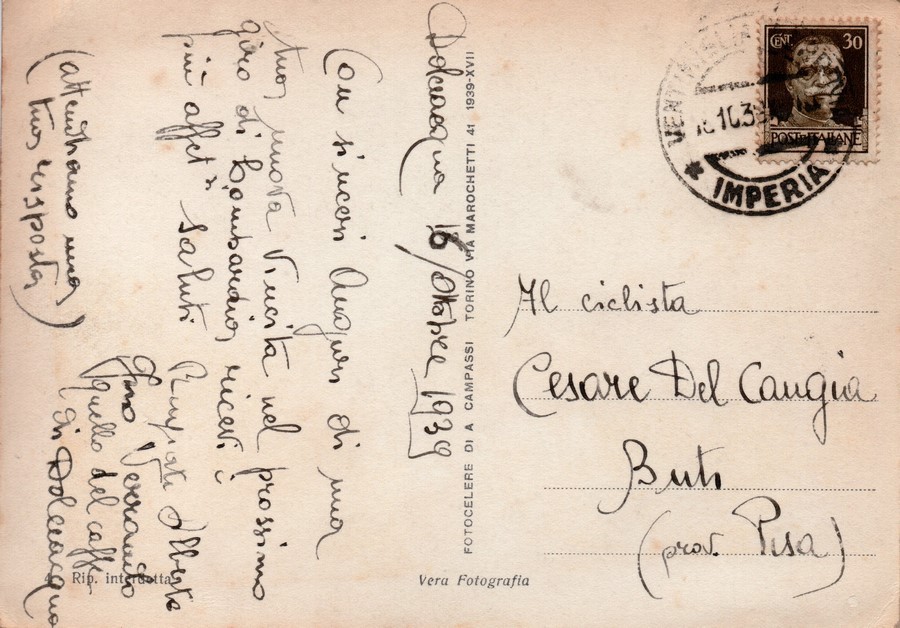 Dolceacqua 16/Ottobre 1939
Con sinceri Auguri di una
tua nuova Vincita nel prossimo
giro di Lombardia, ricevi i
più affet.ti Saluti
Alberto
Gino Verrando
Quello del caffe
di Dolceacqua
(attendiamo una
tua risposta)
Rip. interdetta
Vera Fotografia
FOTOCELERE DI A. CAMPASSI TORINO VIA MAROCHETTI 41 1939-XVII
CENT. 30
POSTE ITALIANE
VENTIMIGLIA
16.10.39
* IMPERIA
Al ciclista
Cesare Del Cangia
Buti
(prov. Pisa)